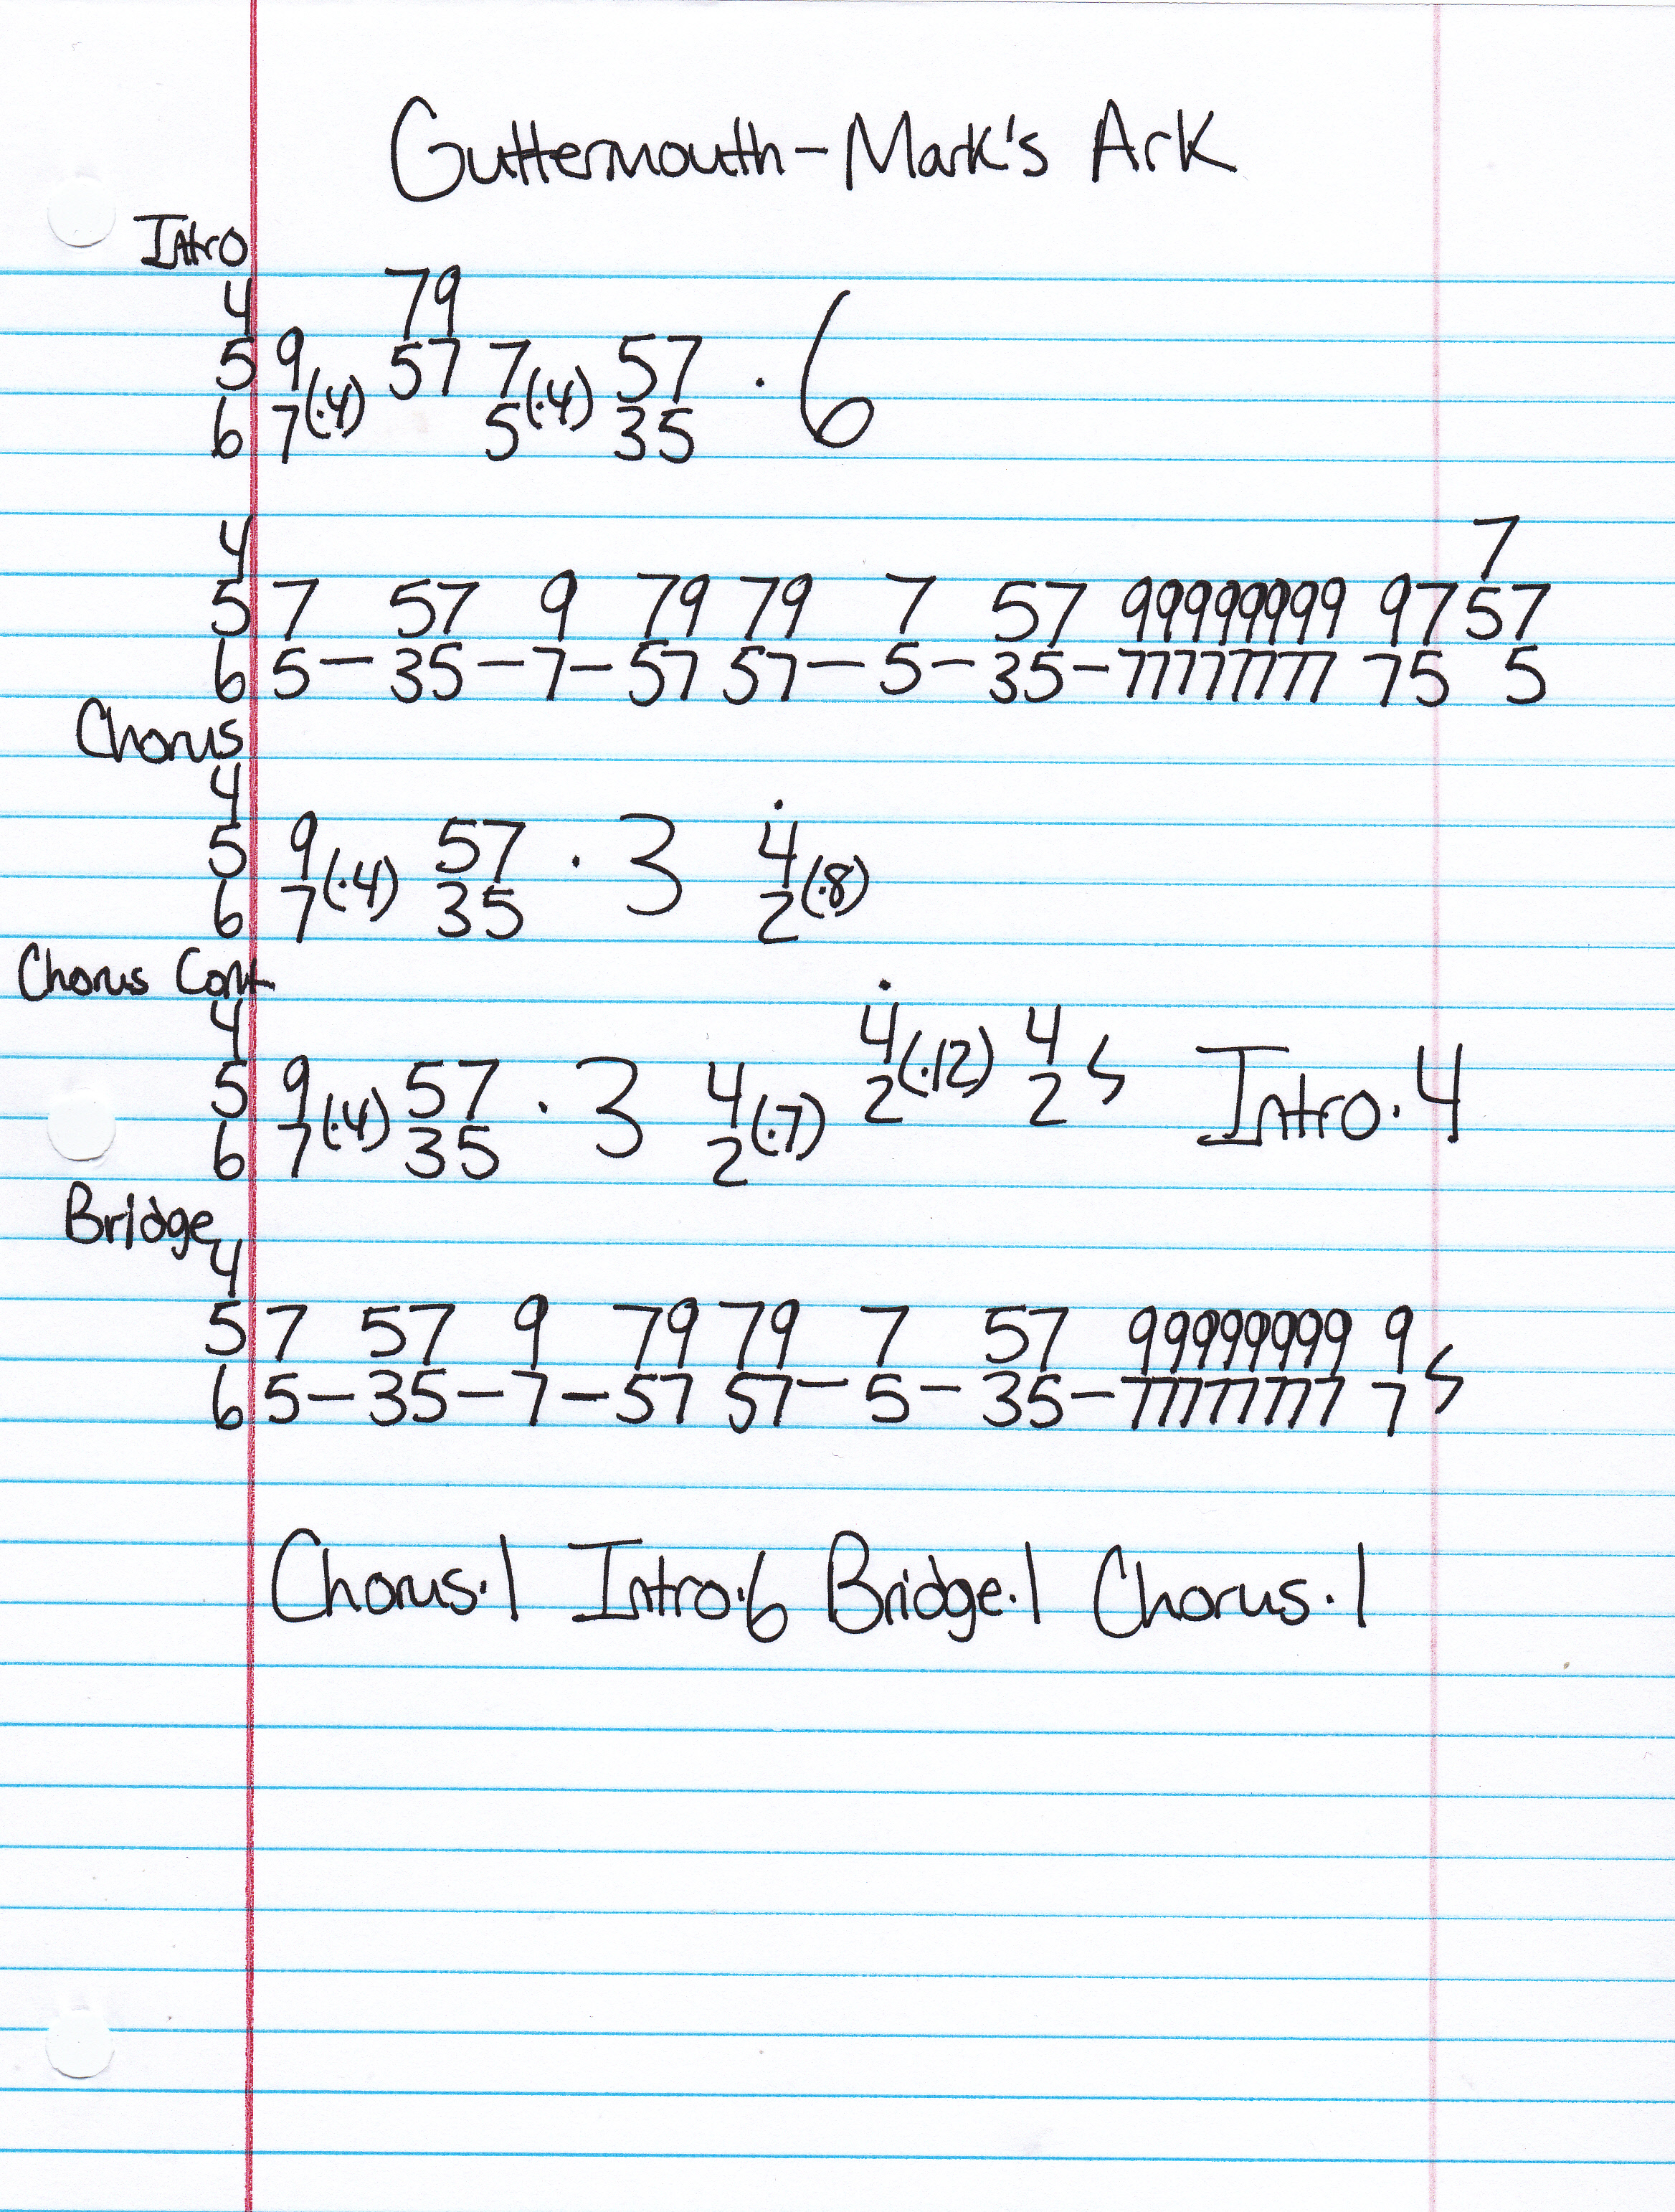 Guttermouth - Mark's Ark
Intro
4 79
5 9 57 7 57
6 7 (·4) 5 (·4) 35 · 6
4 7
5 7 57 9 79 79 7 57 99999999 97 57
6 5 - 35 - 7 - 57 57 - 5 - 35 - 77777777 75 5
Chorus
4
5 9 57 4
6 7 (·4) 35 · 3 2 (·8)
Chorus Cont
4 4 4
5 9 57 4 2 (·12) 2 ϟ Intro·4
6 7 (·4) 35 · 3 2 (·7)
Bridge
4
5 7 57 9 79 79 7 57 99999999 9
6 5 - 35 - 7 - 57 57 - 5 - 35 - 77777777 7 ϟ
Chorus·1 Intro·6 Bridge·1 Chorus·1